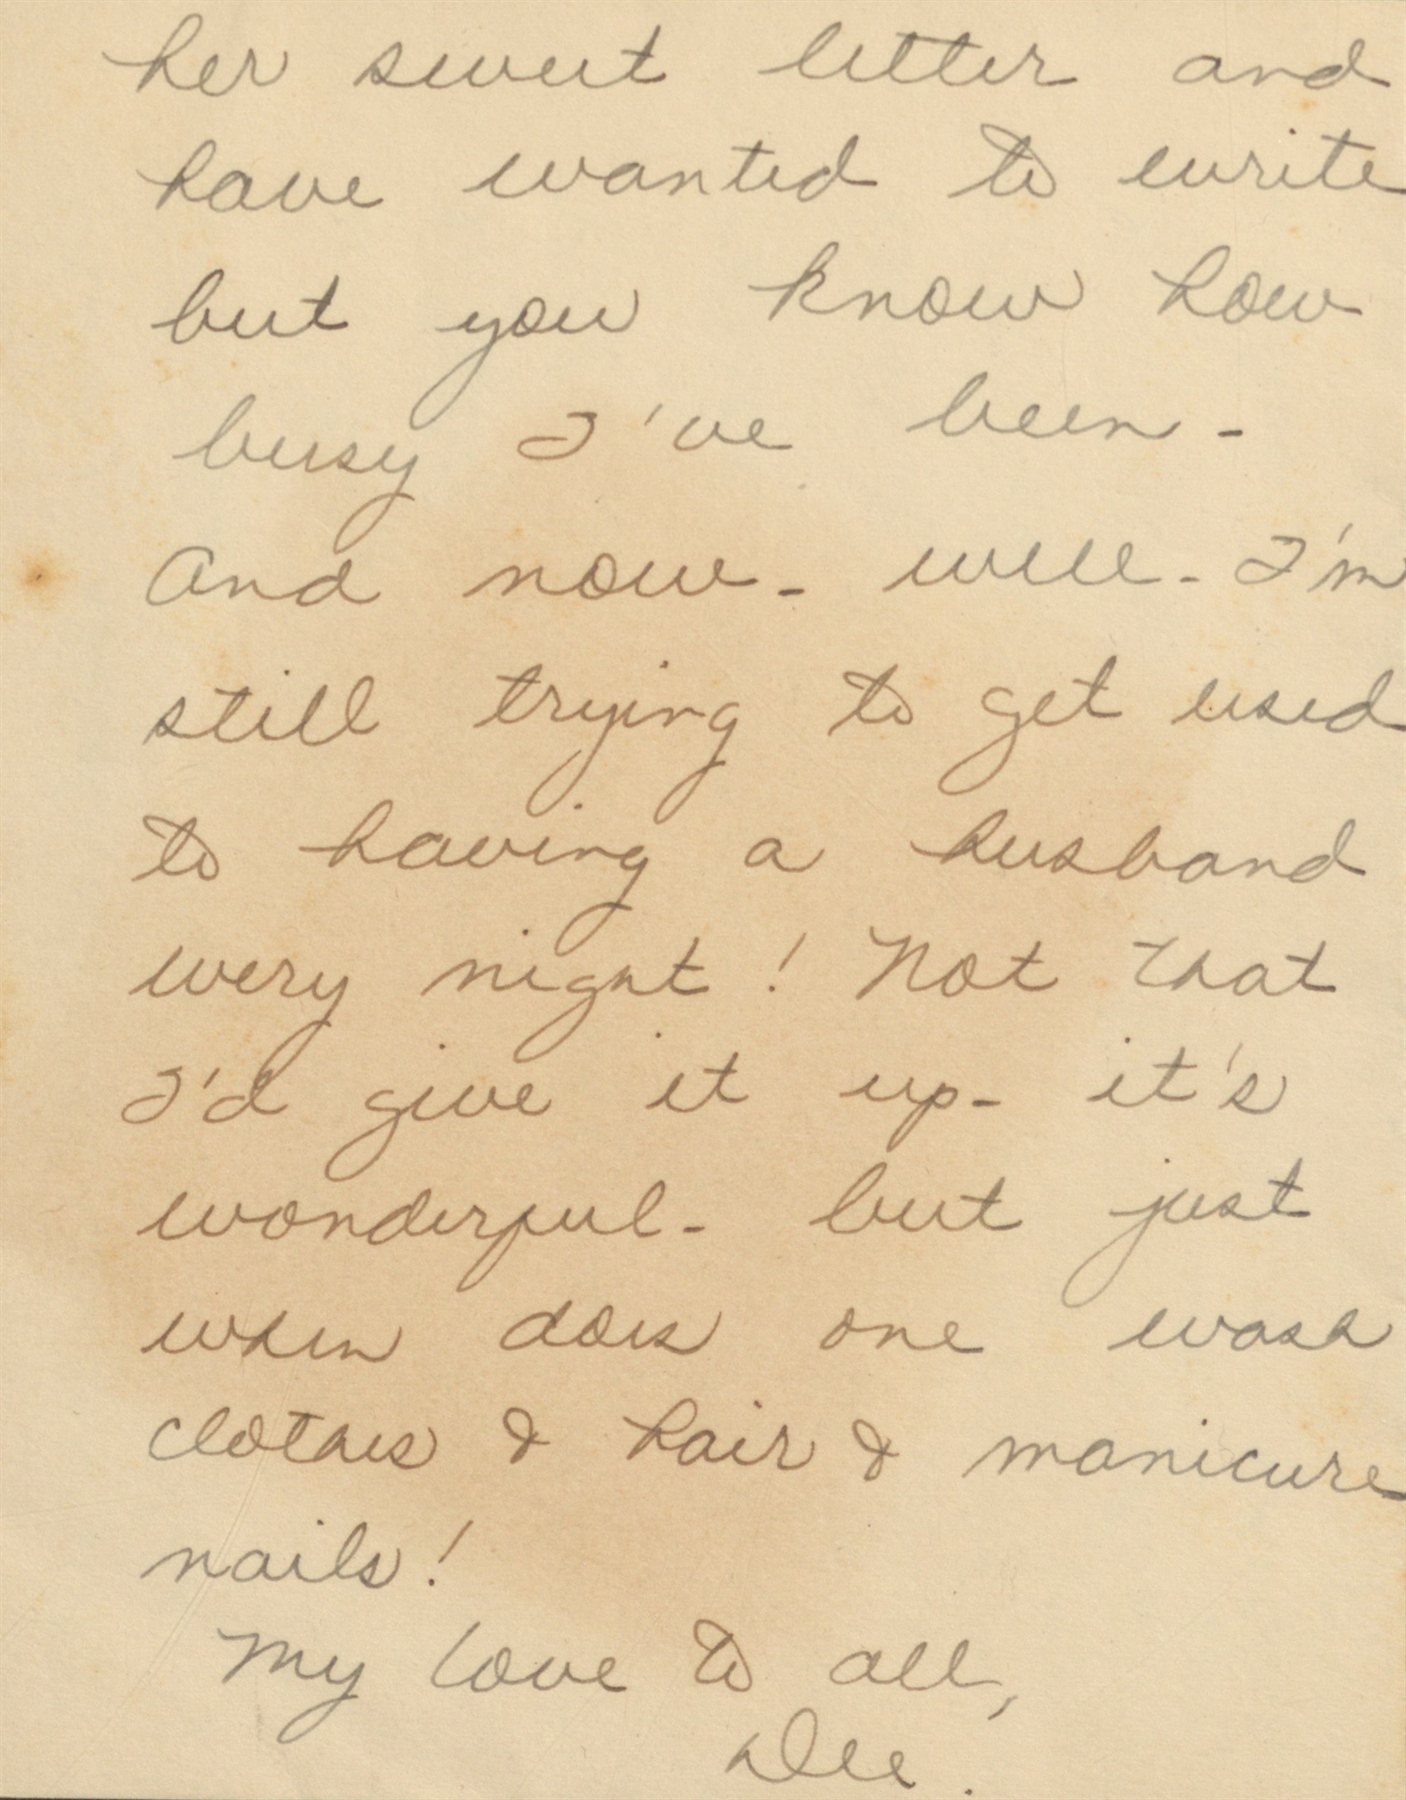 her sweet letter and
have wanted to write
but you know how
busy I've been -
And now - well - I'm
still trying to get used
to having a husband
every night! Not that
I'd give it up - it's
wonderful - but just
when does one wash
clothes & hair & manicure
nails!
My love to all,
Dee.